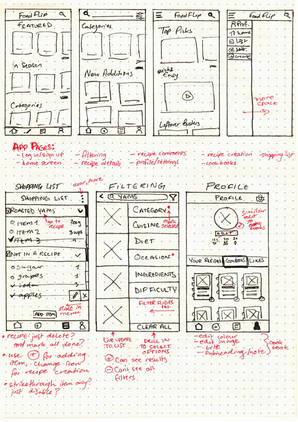 FoodFlip
FEATURED
In Season
Categories
Categories
New Additions
FoodFlip
Top Picks
Quick + Easy
Leftover Basics
FoodFlip
Home
APP PAGES:
- Log in/sign up
- home screen
- filtering
- recipe details
- recipe comments
- profile/settings
- recipe creation
- cookbooks
- shopping list
SHOPPING LIST
SHOPPING LIST
ROASTED YAMS
ITEM 1
ITEM 2
ITEM 3
NOT IN A RECIPE
Sugar
grapes
apples
ADD ITEM
FILTERING
YAMS
CATEGORY
CUISINE
DIET
OCCASION
INGREDIENTS
DIFFICULTY
FILTER SLIDES
CLEAR ALL
PROFILE
PROFILE
EDIT
YOUR RECIPES
COOKBOOKS
LIKES
* recipe/just delete?
or mark all done?
* use + for adding
item, change now
for recipe creation
* strikethrough item only?
just disable?
LIVE UPDATE
TO LIST
DRILL IN
TO SELECT
OPTIONS
+ Can see results
- Can't see all
filters
- edit colour
- edit image
- title
- subheading/note